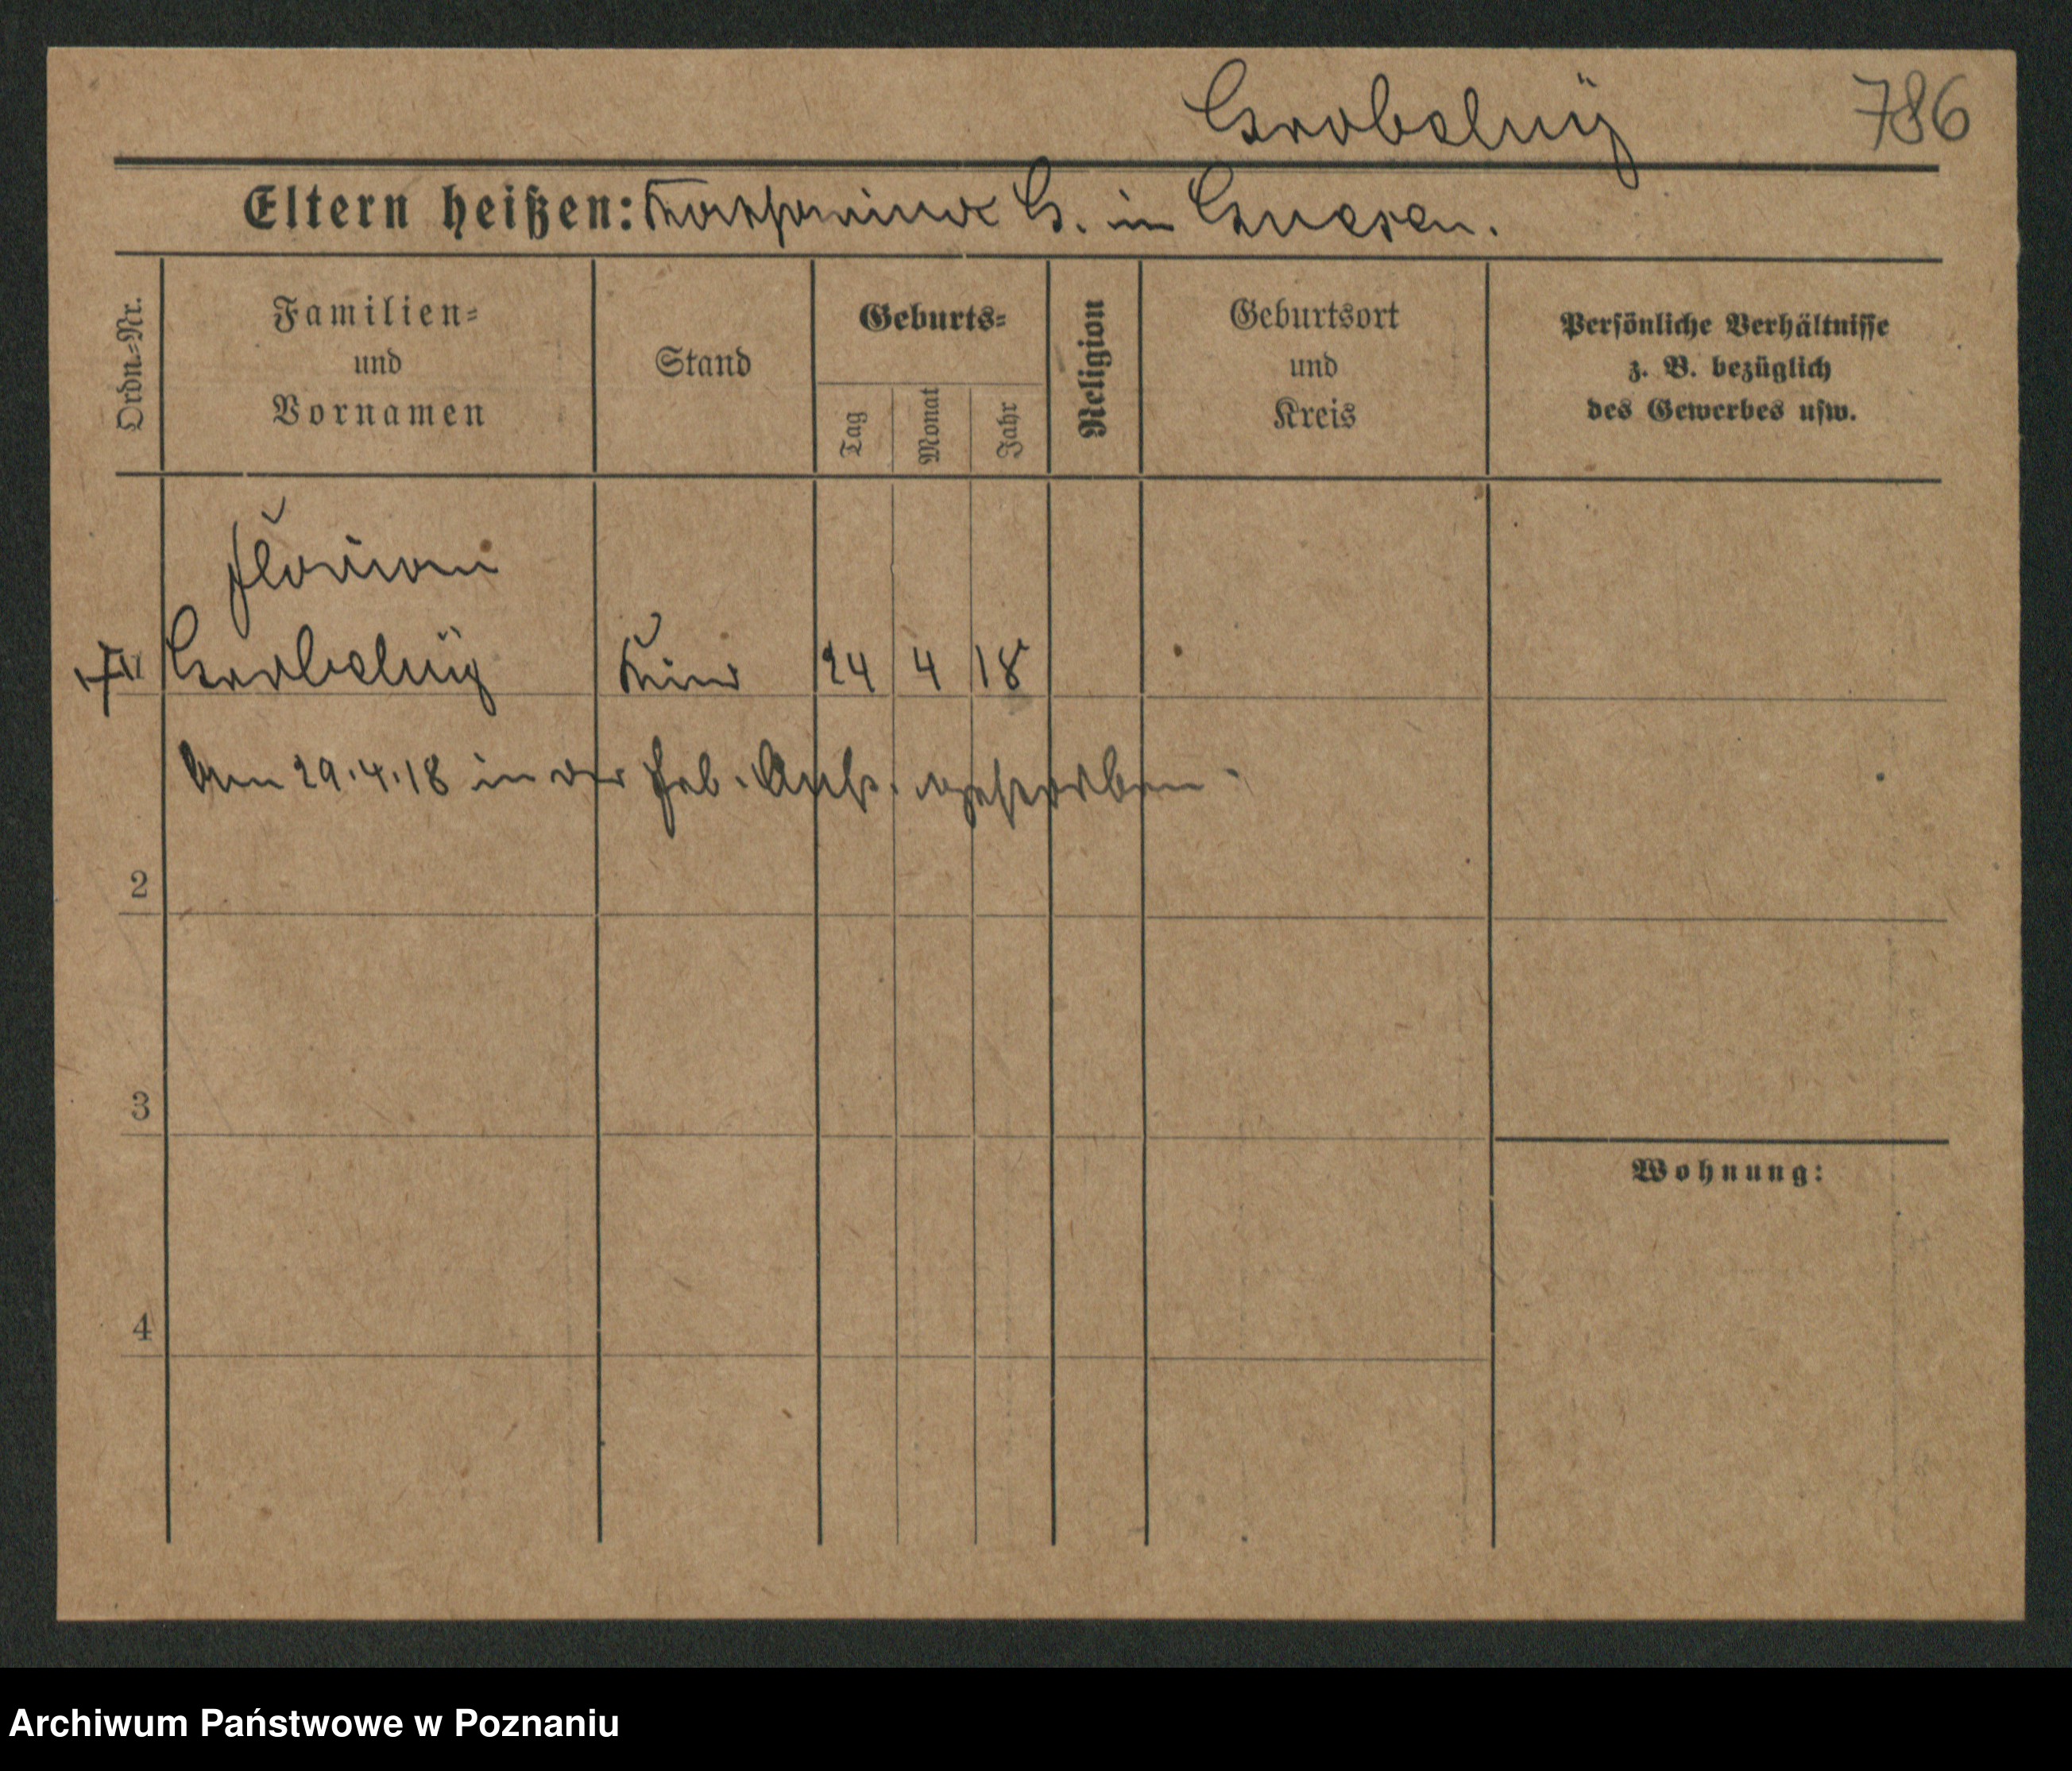 Grobelny 786
Eltern heißen: Katharina G. in Gnesen.
Ordn.=Nr.
Familien=
und
Vornamen
Stand
Geburts=
Tag
Monat
Jahr
Religion
Geburtsort
und
Kreis
Persönliche Verhältnisse
z. B. bezüglich
des Gewerbes usw.
Florian
Grobelny Kind 24 4 18
Am 29.4.18 in der Heb. Anst. gestorben.
2
3
Wohnung:
4
Archiwum Państwowe w Poznaniu